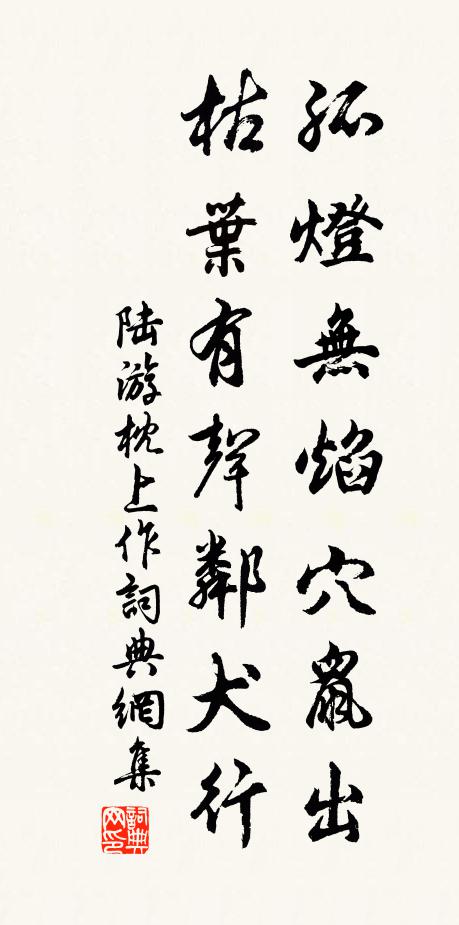 孤燈無焰穴鼠出
枯葉有聲鄰犬行
陸游枕上作詞典網集
詞典網印